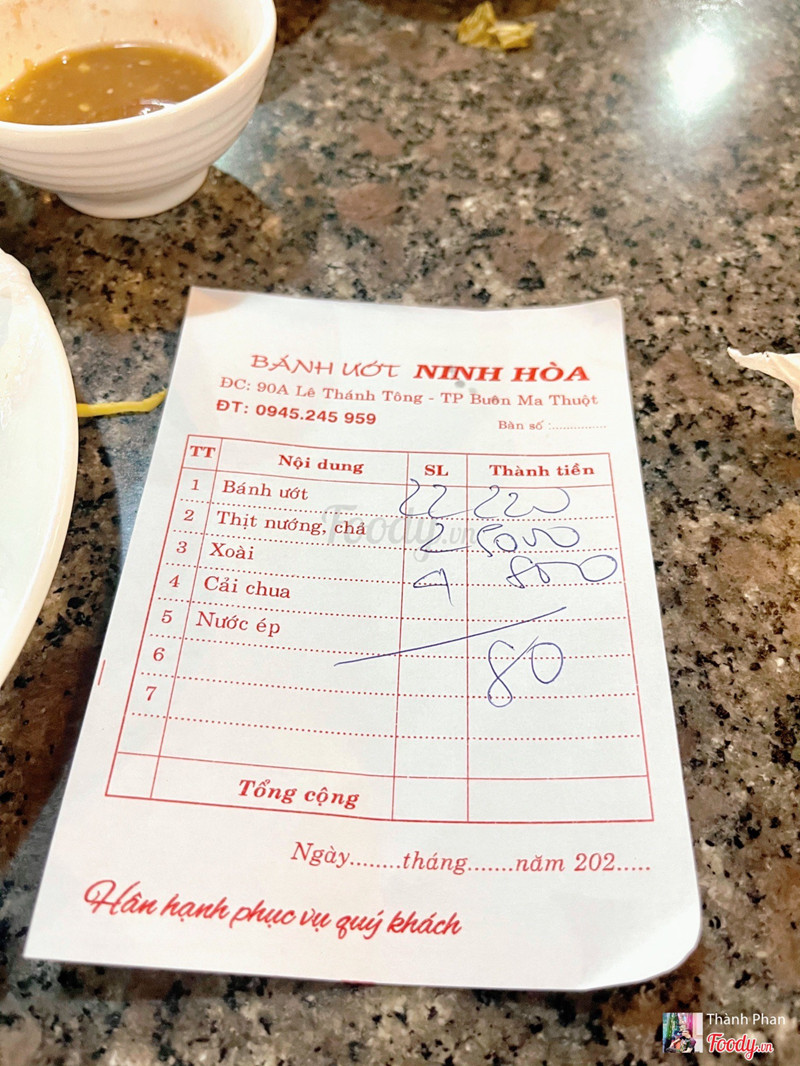 BÁNH ƯỚT NINH HÒA
ĐC: 90A Lê Thánh Tông - TP Buôn Ma Thuột
ĐT: 0945.245 959
Bàn số :..............
TT Nội dung SL Thành tiền
1 Bánh ướt 22 220
2 Thịt nướng, chả 2
3 Xoài 4
4 Cải chua
5 Nước ép
80
6
7
Tổng cộng
Ngày........tháng.......năm 202.....
Hân hạnh phục vụ quý khách
Foody.vn
Thành Phan
Foody.vn